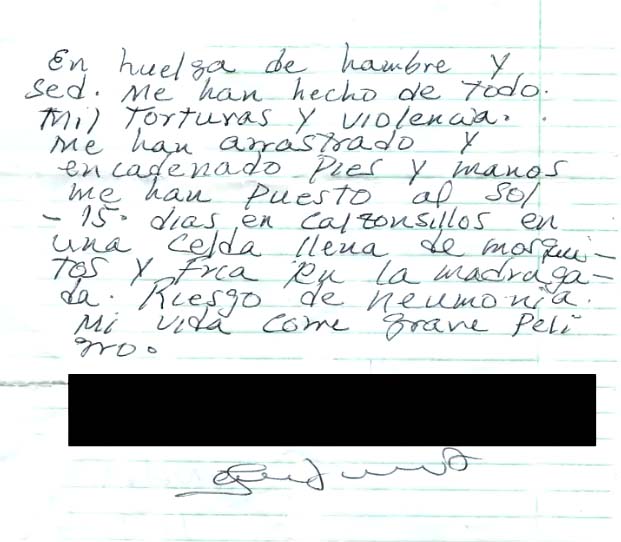 En huelga de hambre y
sed. Me han hecho de Todo.
Mil Torturas y violencia.
me han arrastrado y
encadenado Pies y manos
me han Puesto al Sol
- 15 dias en calzonsillos en
una celda llena de mosqui-
tos y fria en la madruga-
da. Riesgo de neumonia.
Mi vida corre grave Peli
gro.